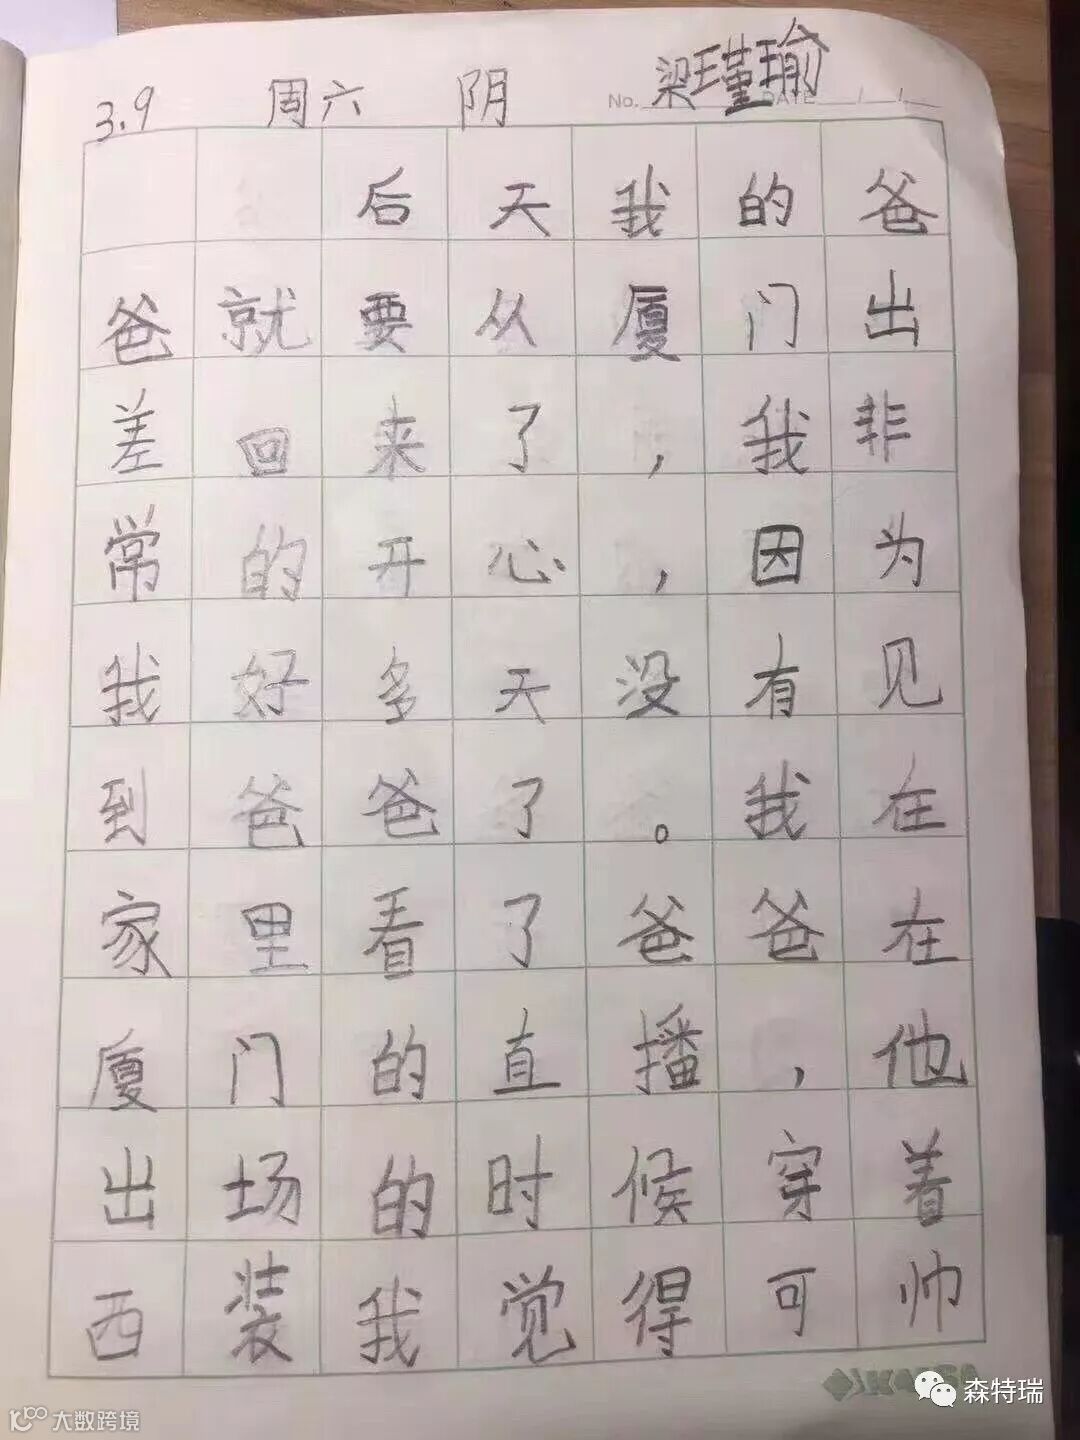 3.9 周六 阴 No. 梁瑾瑜 DATE
后天我的爸
爸就要从厦门出
差回来了，我非
常的开心，因为
我好多天没有见
到爸爸了。我在
家里看了爸爸在
厦门的直播，他
出场的时候穿着
西装我觉得可帅
森特瑞
大数跨境